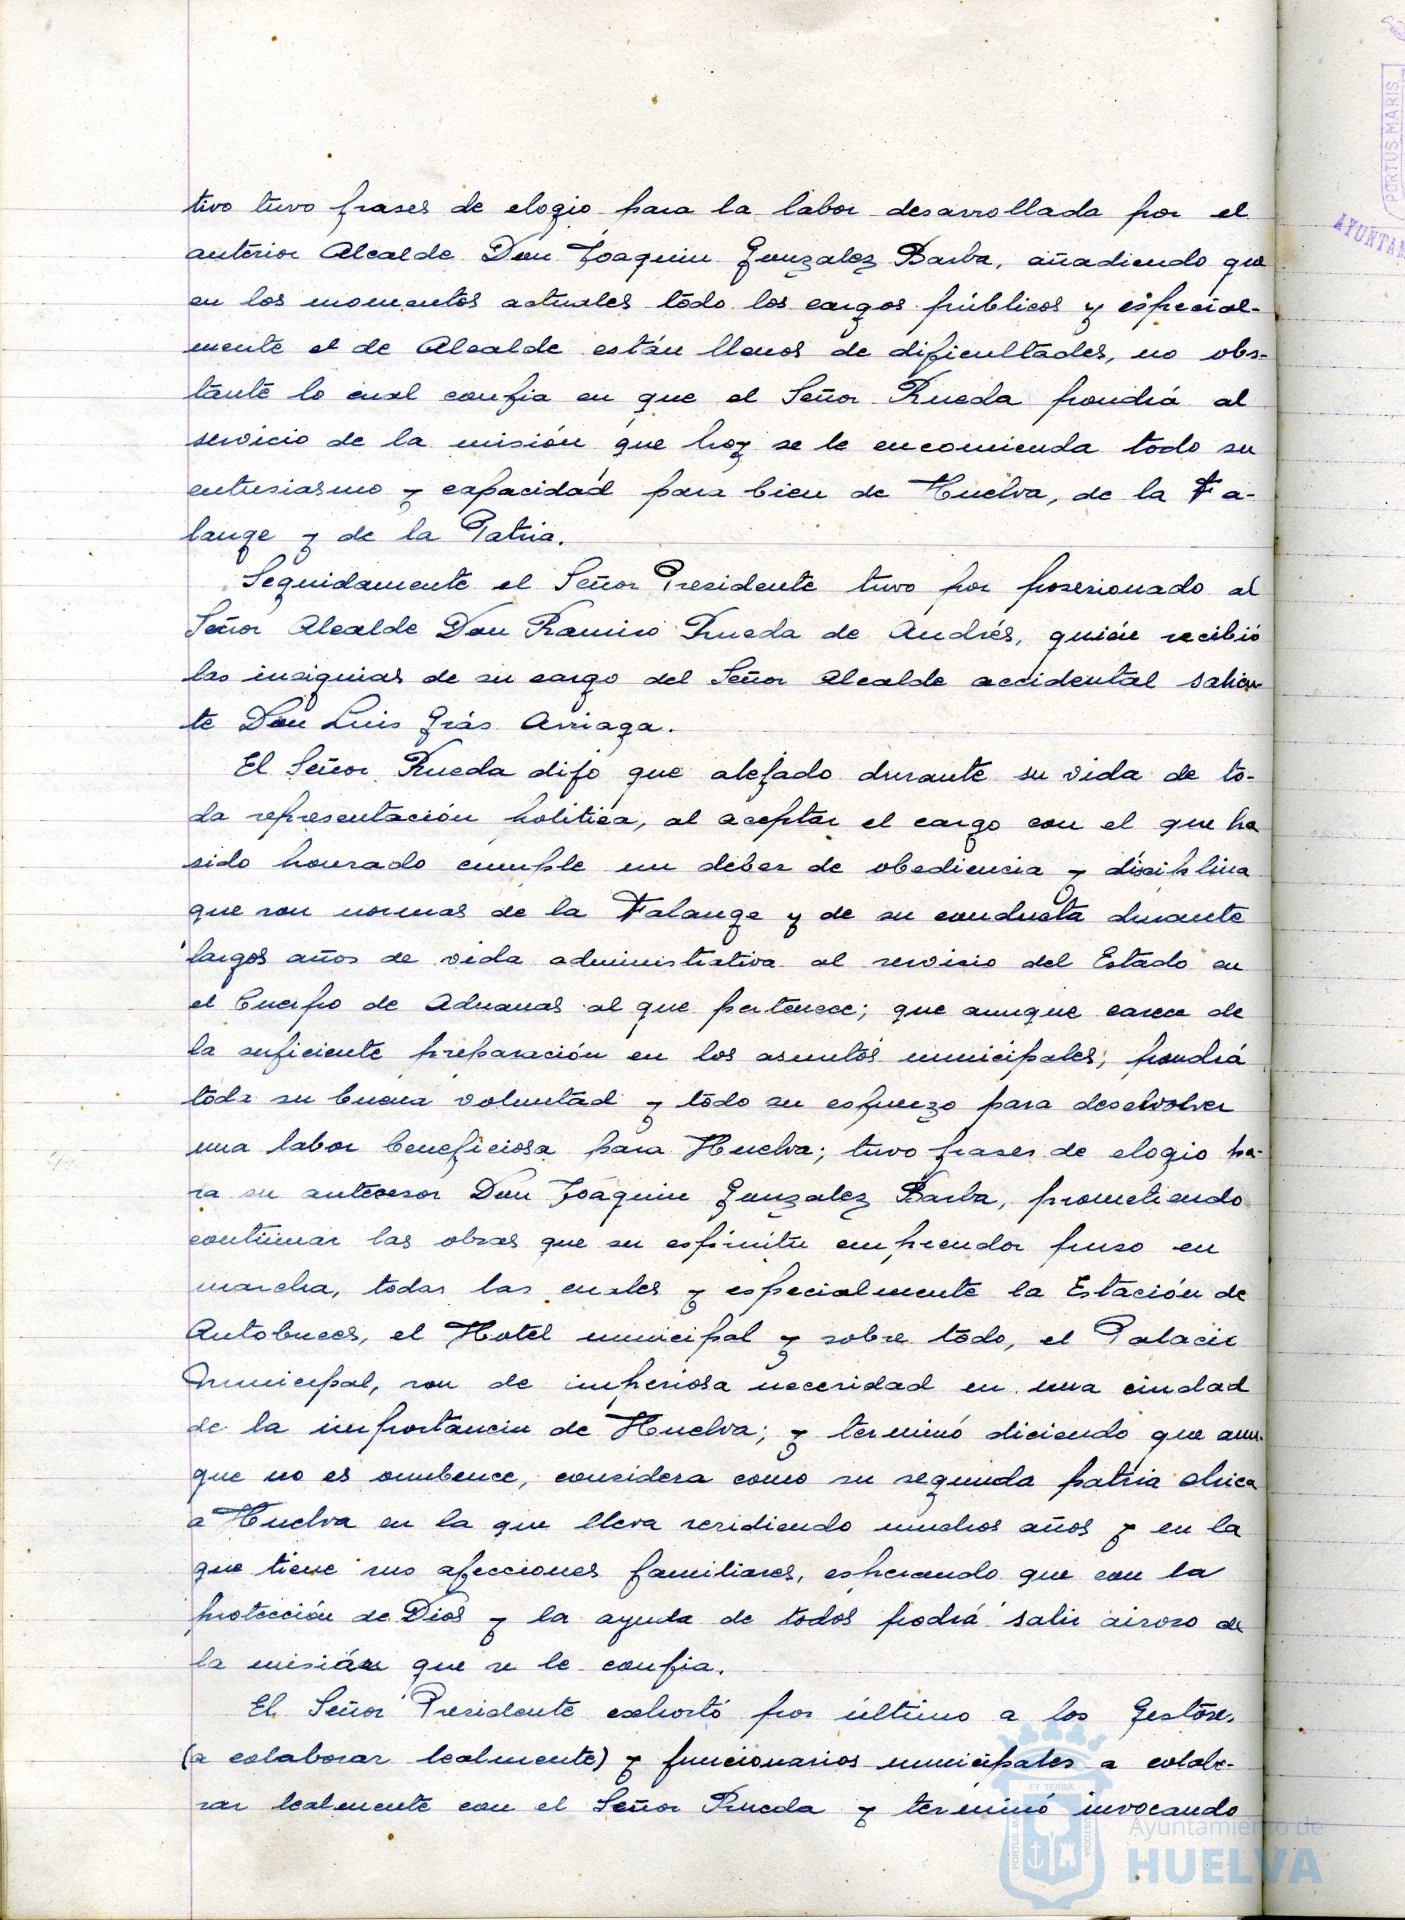 tivo tuvo frases de elogio para la labor desarrollada por el
anterior Alcalde Don Joaquin Gonzalez Barba, añadiendo que
en los momentos actuales todo los cargos públicos y especial-
mente el de Alcalde están llenos de dificultades, no obs-
tante lo cual confia en que el Señor Rueda pondrá al
servicio de la misión que hoy se le encomienda todo su
entusiasmo y capacidad para bien de Huelva, de la Fa-
lange y de la Patria.
Seguidamente el Señor Presidente tuvo por posesionado al
Señor Alcalde Don Ramiro Rueda de Andrés, quién recibió
las insignias de su cargo del Señor Alcalde accidental salien-
te Don Luis Grás Arriaga.
El Señor Rueda dijo que alejado durante su vida de to-
da representación politica, al aceptar el cargo con el que ha
sido honrado cumple un deber de obediencia y disciplina
que son normas de la Falange y de su conducta durante
largos años de vida administrativa al servicio del Estado en
el Cuerpo de Aduanas al que pertenece; que aunque carece de
la suficiente preparación en los asuntos municipales, pondrá
toda su buena voluntad y todo su esfuerzo para desolvolver
una labor beneficiosa para Huelva; tuvo frases de elogio pa-
ra su antecesor Don Joaquin Gonzalez Barba, prometiendo
continuar las obras que su espíritu emprendor puso en
marcha, todas las cuales y especialmente la Estación de
Autobuces, el Hotel municipal y sobre todo, el Palacio
Municipal, son de imperiosa necesidad en una ciudad
de la importancia de Huelva; y terminó diciendo que aun-
que no es onubence, considera como su segunda patria chica
a Huelva en la que lleva residiendo muchos años y en la
que tiene sus afecciones familiares, esperando que con la
protección de Dios y la ayuda de todos podrá salir airoso de
la misión que se le confia.
El Señor Presidente exhortó por último a los Gestores
(a colaborar lealmente) y funcionarios municipales a colabo-
rar lealmente con el Señor Rueda y terminó invocando
PORTUS MARIS
AYUNTAM
ET TERRÆ
PORTUS MARIS
CUSTODIA
Ayuntamiento de
HUELVA